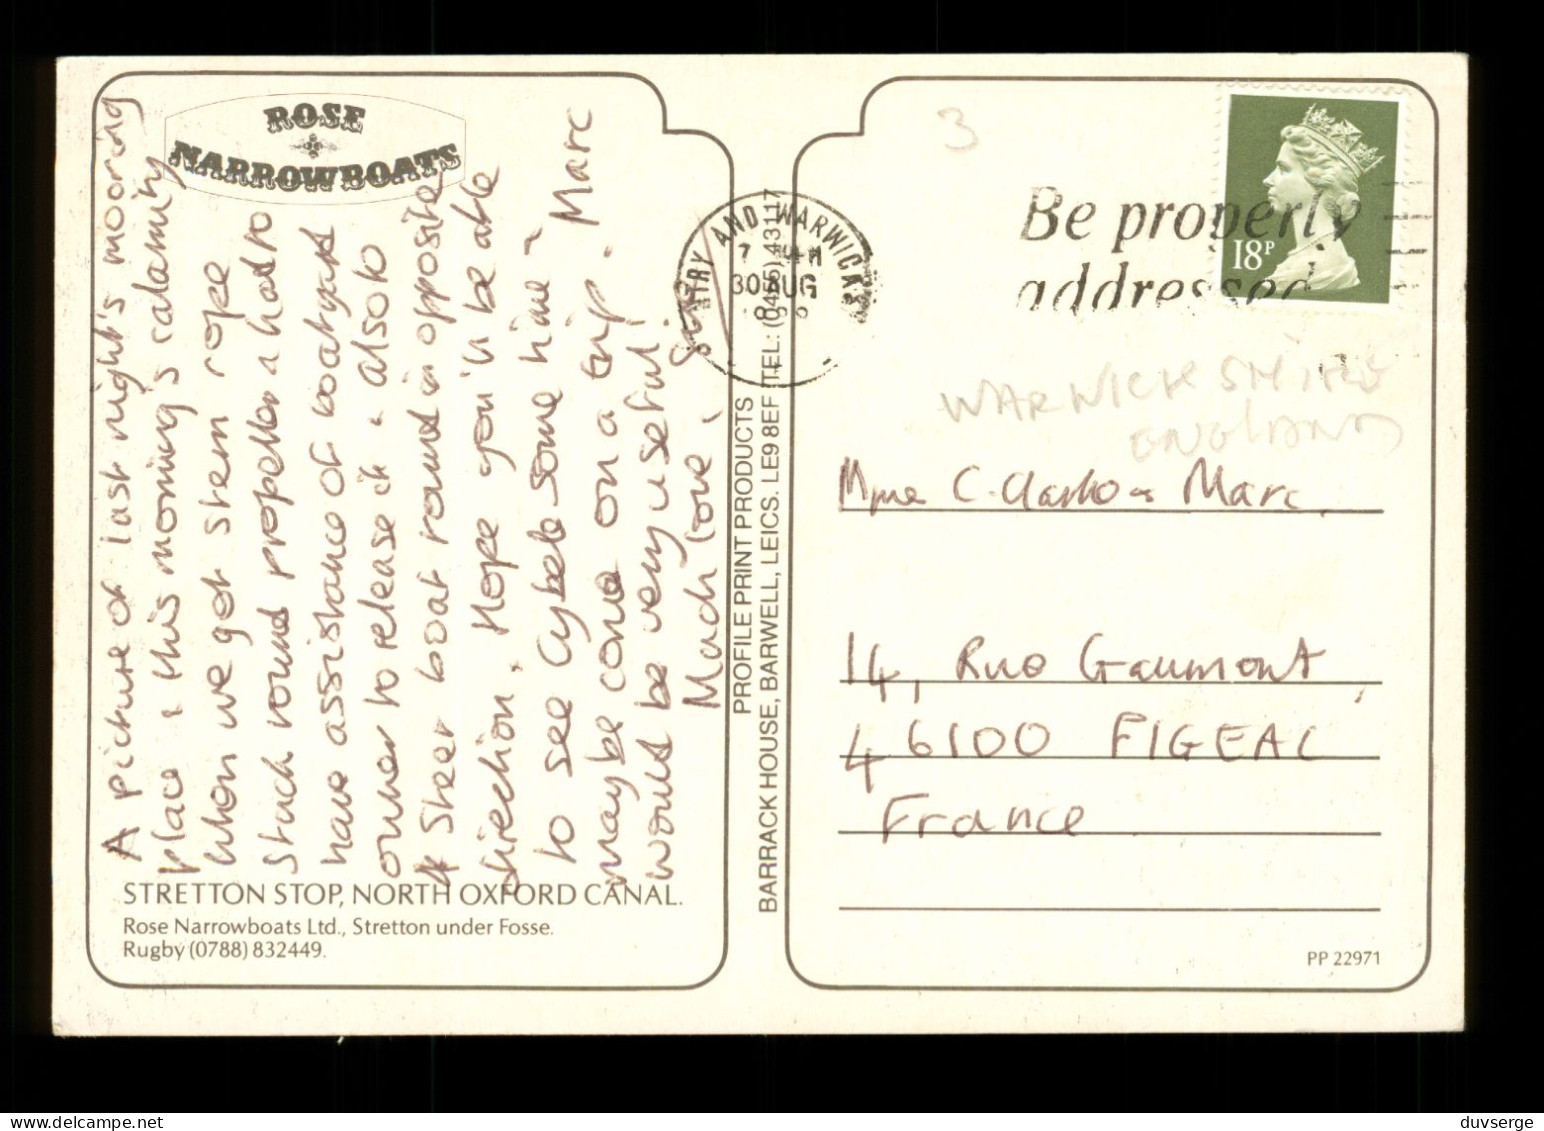 ROSE
NARROWBOATS
A picture of last night's mooring
place & this morning's calamity
when we got stern rope
stuck round propeller & had to
have assistance of boatyard
owner to release it & also to
steer boat round in opposite
direction. Hope you'll be able
to see Cybele some time -
maybe come on a trip. Marc
would be very useful!
Much love,
STRETTON STOP, NORTH OXFORD CANAL.
Rose Narrowboats Ltd., Stretton under Fosse.
Rugby (0788) 832449.
PROFILE PRINT PRODUCTS
BARRACK HOUSE, BARWELL, LEICS. LE9 8EF TEL: (0455) 43117
AND WARWICKS
30 AUG
3
Be properly
addressed
18P
WARWICKSHIRE
ENGLAND
Mme C. & Marc
14, Rue Gaumont,
46100 FIGEAC
France
PP 22971
duvserge